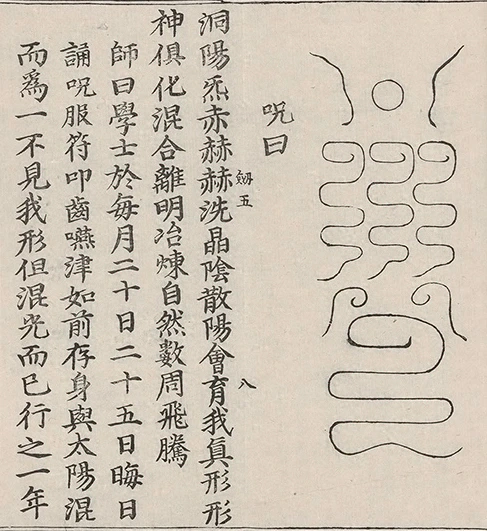 呪曰
劒五
八
洞陽炁赤赫赫洗晶陰散陽會育我眞形形
神俱化混合離明冶煉自然數周飛騰
師曰學士於每月二十日二十五日晦日
誦呪服符叩齒嚥津如前存身與太陽混
而爲一不見我形但混光而已行之一年